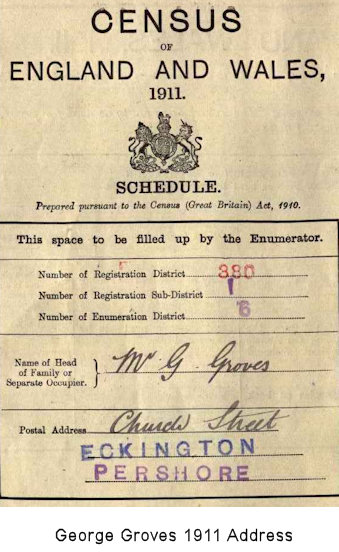 CENSUS
OF
ENGLAND AND WALES,
1911.
SCHEDULE.
Prepared pursuant to the Census (Great Britain) Act, 1910.
This space to be filled up by the Enumerator.
Number of Registration District 380
Number of Registration Sub-District 1
Number of Enumeration District 6
Name of Head
of Family or
Separate Occupier.
Mr G Groves
Postal Address Church Street
ECKINGTON
PERSHORE
George Groves 1911 Address